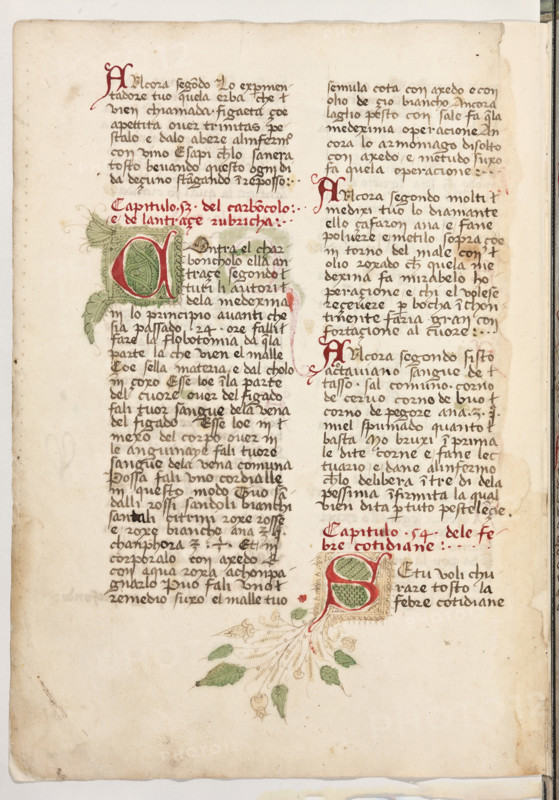 Ancora segondo Lo experimen
tadore tuo quela erba che t
vien chiamada figaeta çoe
apetita over trinitas pe
stalo e dalo abere alinferm
con vino Esapi ch lo sanera
tosto bevando questo ogni di
da deçuno stagando i reposso
Capitulo .53. del carboncolo
e de lantraçe rubricha
Contra el char
boncholo ella an
traçe segondo t
tuti li autori t
dela medexima
in lo principio avanti che
sia passado .24. ore falli t
fare la flobotomia da qla
parte la che vien el malle
Çoe sella materia e dal cholo
in çoxo Esse loe i la parte
del cuore over del figado
fali tuor sangue dela vena
del figado Esse loe in t
mexo del corpo over in
le anguinaye fali tuore
sangue dela vena comuna
Possa fali uno cordialle
in questo modo Tuo sa
dalli rossi sandoli bianchi
sandali citrini roxe rosse
e roxe bianche ana
chanphora Et in
corpóralo con axedo
con aqua roxa achonpa
gnarlo Puo fali uno t
remedio suxo el malle tuo
semula cota con axedo e con
olio de zio biancho Ancora
laglio pesto con sale fa qla
medexima operacione An
cora lo armoniago disolto
con axedo e metudo suxo
fa quela operacione
Ancora segondo molti t
medixi tuo lo diamante
ello çafaron ana e fane
polvere e metilo sopra çoe
in torno del male con t
olio roxado ch quela me
dexima fa mirabelo ho
peracione e chi el volese
reçevere p bocha i chon
tinente faria gran con
fortacione al cuore
Ancora segondo sisto
actaviano sangue de t
tasso sal comuno corno
de cervo corno de buo t
corno de pegore ana
miel spumado quanto t
basta Mo bruxi i prima
le dite corne e fane lec
tuario e dane alinfermo
ch lo delibera i tre di dela
pessima i firmita la qual
vien dita p tuto pestelençie
Capitulo .54. dele fe
bre cotidiane
Se tu voli chu
rare tosto la
febre cotidiane